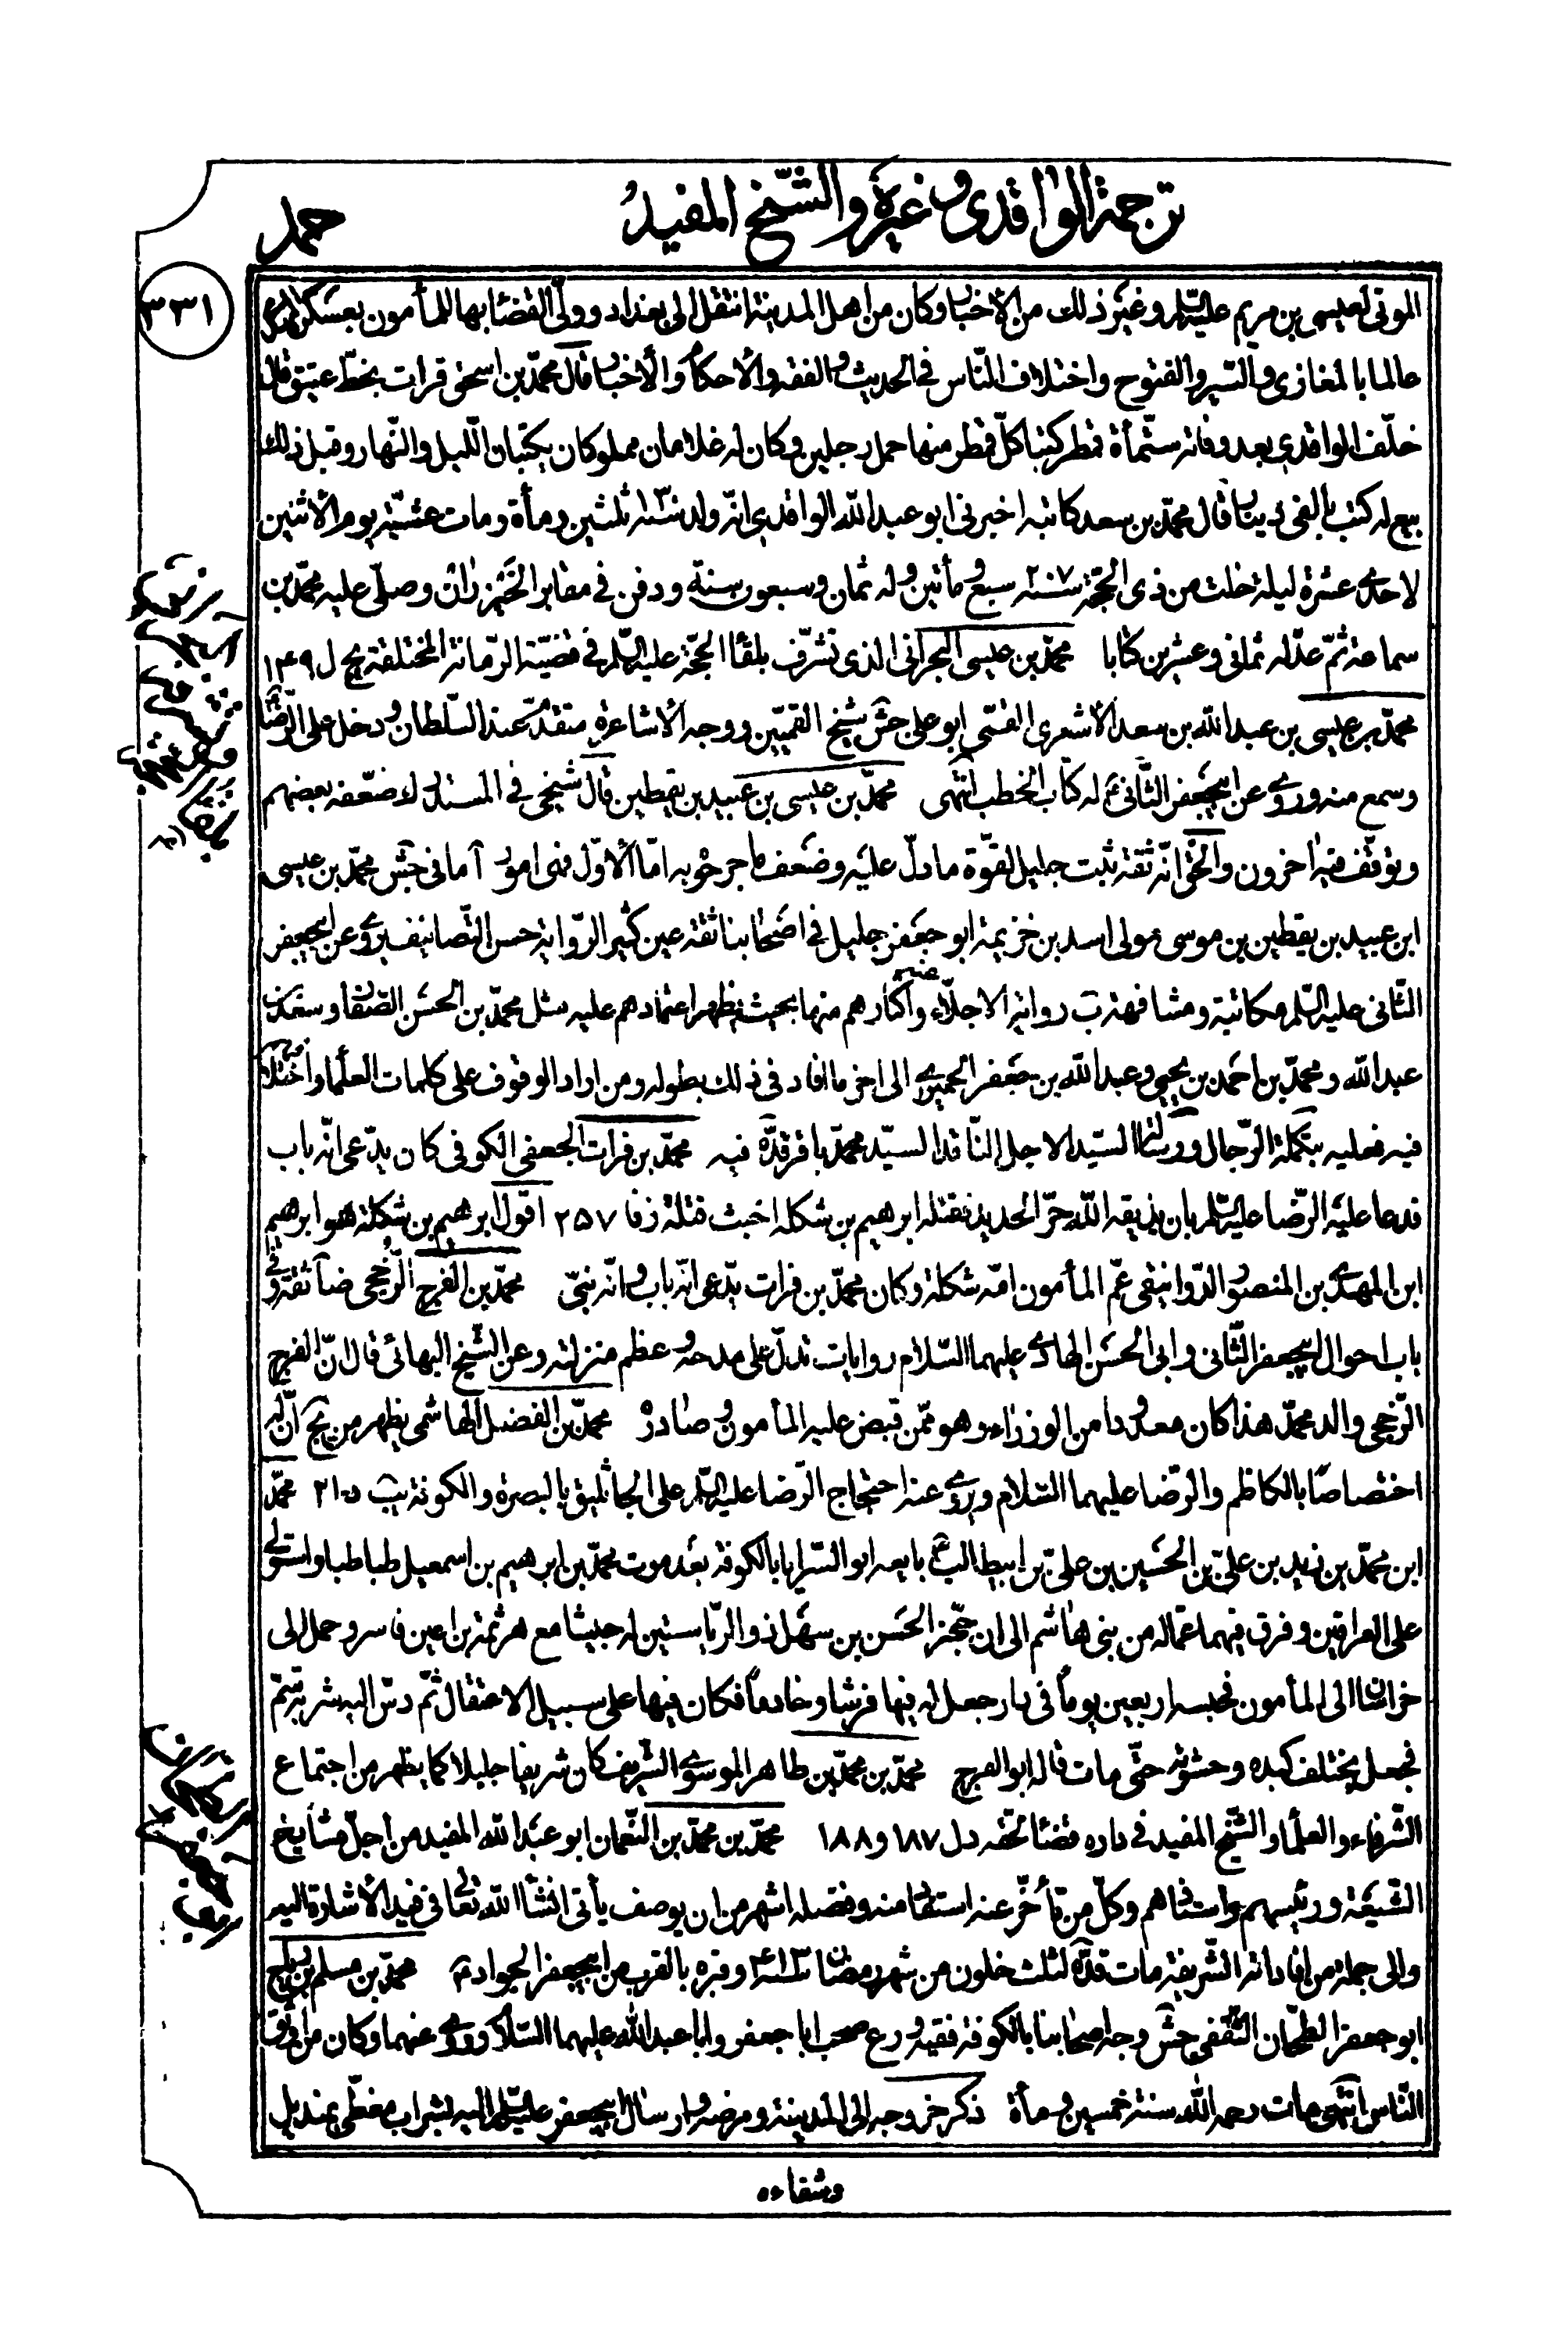 ترجمة الواقدى وغيره والشيخ المفيد
حمد
٣٣١
الموتى لعيسى بن مريم عليه السّلم وغير ذلك من الأخبار وكان من اهل المدينة انتقل الى بغداد وولّى القضا بها للمأمون بعسكر المهدى
عالما بالمغازى والسّير والفتوح واختلاف النّاس فى الحديث والفقه والأحكام والأخبار قال محمّد بن اسحق قرات بخطّ عتيق قال
خلّف الواقدى بعد وفاته ستّمأة قمطر كتبا كلّ قمطر منها حمل رجلين وكان له غلامان مملوكان يكتبان اللّيل والنّهار وقبل ذلك
بيع له كتب بالفى دينار قال محمّد بن سعد كاتبه اخبرنى ابو عبد الله الواقدى انّه ولد سنة ١٣٠ ثلثين ومأة ومات عشيّة يوم الأثنين
لاحدى عشرة ليلة خلت من ذى الحجّة سنة ٢٠٧ سبع ومأتين وله ثمان وسبعون سنة ودفن فى مقابر الخيزران وصلّى عليه محمّد بن
سماعة ثمّ عدّ له ثمانى وعشرين كتابا محمّد بن عيسى البحرانى الذى تشرّف بلقاء الحجّة عليه السّلم فى قضيّة الرّمانة المختلقة يج ل ١٤٩
محمّد بن عيسى بن عبد الله بن سعد الأشعرى القمّى ابو على جش شيخ القميّين ووجه الأشاعرة متقدّم عند السّلطان ودخل على الرّضا
وسمع منه وروى عن ابيجعفر الثّانى ع له كتاب الخطب انتهى محمّد بن عيسى بن عبيد بن يقطين قال شيخى فى المستدرك ضعّفه بعضهم
وتوقّف فيه اخرون والحقّ انّه ثقة ثبت جليل لقوّة ما دلّ عليه وضعف ما جرحوبه امّا الأوّل فهى امور آ ما فى جش محمّد بن عيسى
ابن عبيد بن يقطين بن موسى مولى اسد بن خزيمة ابو جعفر جليل فى اصحابنا ثقة عين كثير الرّواية حسن التّصانيف روى عن ابيجعفر
الثّانى عليه السّلم مكاتبة ومشافهة ب رواية الاجلّاء عنه واكثارهم منها بحيث يظهر اعتمادهم عليه مثل محمّد بن الحسن الصفّار وسعد بن
عبد الله ومحمّد بن احمد بن يحيى وعبد الله بن جعفر الحميرى الى اخر ما افاد فى ذلك بطوله ومن اراد الوقوف على كلمات العلما واختلافهم
فيه فعليه بتكملة الرّجال ورسالة السيّد الاجل النّاقد السيّد محمّد باقر قدّه فيه محمّد بن فرات الجعفى الكوفى كان يدّعى انّه باب
فدعا عليه الرّضا عليه السّلم بان يذيقه الله حرّ الحديد فقتله ابرهيم بن شكله اخبث قتلة زفا ٢٥٧ اقول ابرهيم بن شكلة هو ابرهيم
ابن المهدى بن المنصور الدّوانيقى عمّ المأمون امّه شكلة وكان محمّد بن فرات يدّعى انّه باب وانّه نبىّ محمّد بن الفرج الرّخجى ضا ثقة وفى
باب احوال ابيجعفر الثّانى وابى الحسن الهادى عليهما السّلام روايات تدلّ على مدحه وعظم منزلته وعن الشّيخ البهائى قال انّ الفرج
الرّخجى والد محمّد هذا كان معدودا من الوزراء وهو ممّن قبض عليه المأمون وصادره محمّد بن الفضل الهاشمى يظهر من يج انّ له
اختصاصا بالكاظم والرّضا عليهما السّلام ويروى عنه احتجاج الرّضا عليه السّلم على الجاثليق بالبصرة والكوفة يب ٢١٠ محمّد
ابن محمّد بن زيد بن علىّ بن الحسين بن علىّ بن ابيطالب ع بايعه ابو السّرايا بالكوفة بعد موت محمّد بن ابرهيم بن اسمعيل طباطبا واستولى
على العراقين وفرق فيهما عمّاله من بنى هاشم الى ان جهّز الحسن بن سهل ذو الرّياستين له جيشا مع هرثمة بن اعين فاسر وحمل الى
خراسان الى المأمون فحبسه اربعين يوماً فى دار جعل له فيها فرشا وخادماً فكان فيها على سبيل الاعتقال ثمّ دسّ اليه شربة سمّ
فجعل يختلف كبده وحشوته حتّى مات قاله ابو الفرج محمّد بن محمّد بن طاهر الموسوى الشّريف كان شريفا جليلا كما يظهر من اجتماع
الشّرفاء والعلماء والشّيخ المفيد فى داره قضا تحقه د ل ١٨٧ و ١٨٨ محمّد بن محمّد بن النّعمان ابو عبد الله المفيد من اجلّ مشايخ
الشّيعة ورئيسهم واستاذهم وكلّ من تأخّر عنه استفاد منه وفضله اشهر من ان يوصف يأتى انشاء الله تعالى فى فيد الأشارة اليه
والى جملة من افاداته الشّريفة مات قدّه لثلث خلون من شهر رمضان سنة ٤١٣ وقبره بالقرب من ابيجعفر الجواد ع محمّد بن مسلم بن رباح
ابو جعفر الطّحان الثّقفى جش وجه اصحابنا بالكوفة فقيه ورع صحب ابا جعفر وابا عبد الله عليهما السّلام وروى عنهما وكان من اوثق
النّاس انتهى مات رحمه الله سنة خمسين ومأة ذكر خروجه الى المدينة ومرضه وارسال ابيجعفر عليه السّلم اليه بشراب مغطّى بمنديل
وشفاءه